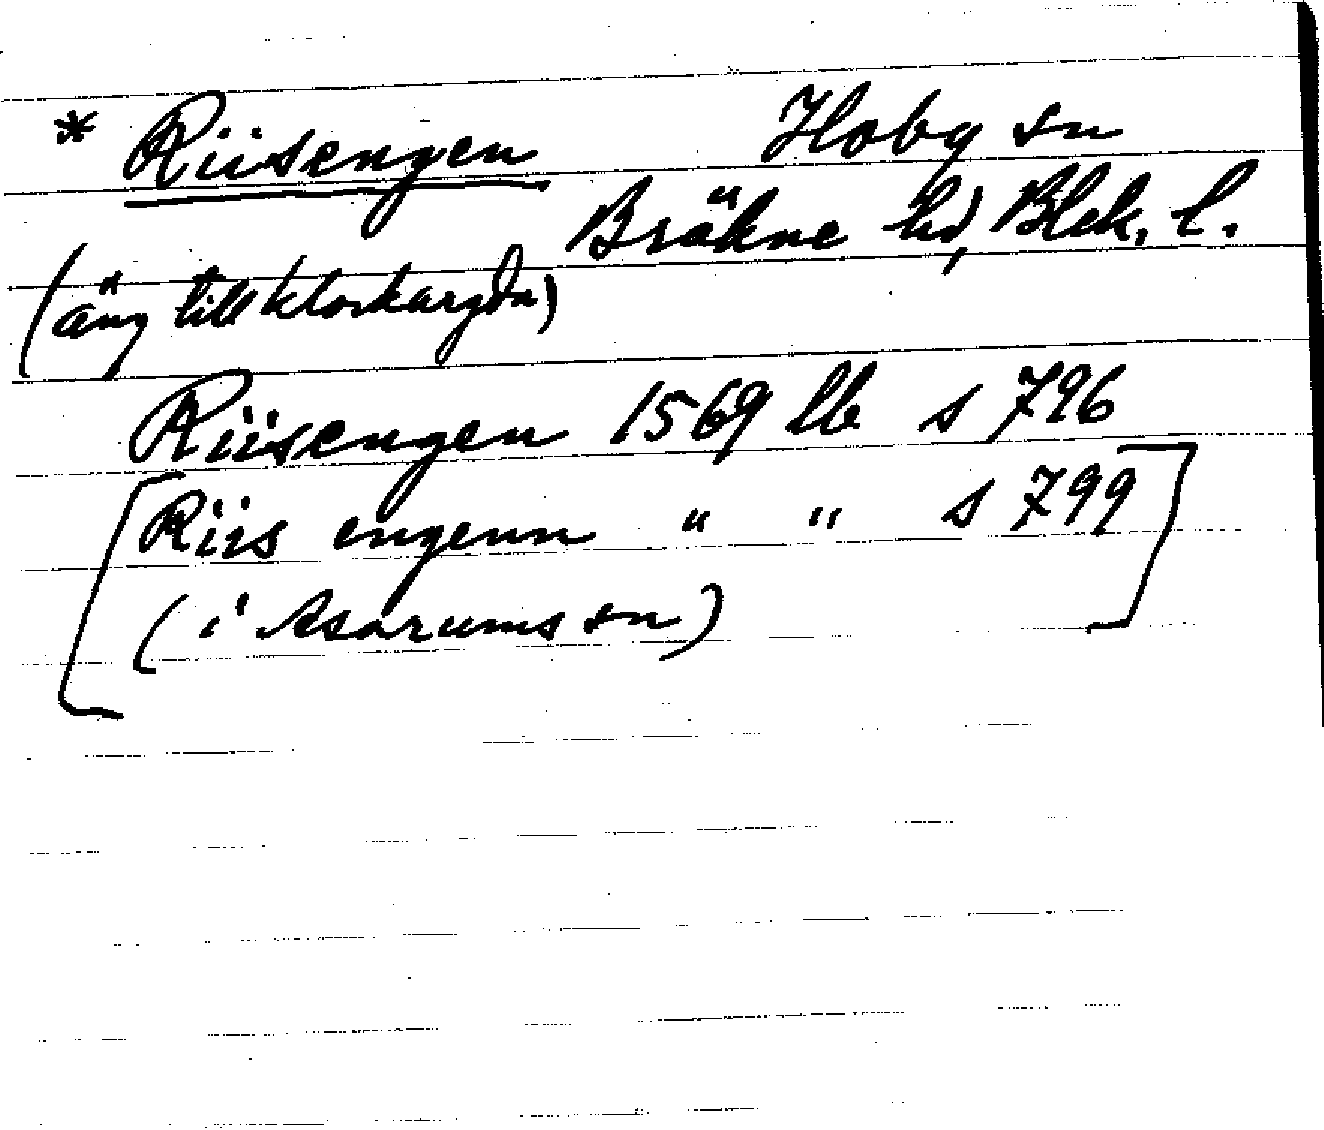 * Riisengen Hoby sn
Bräkne hd, Blek. l.
(äng till klockargdn)
Riisengen 1569 lb s 796
[Riis engenn " " s 799]
(i Asarums sn)